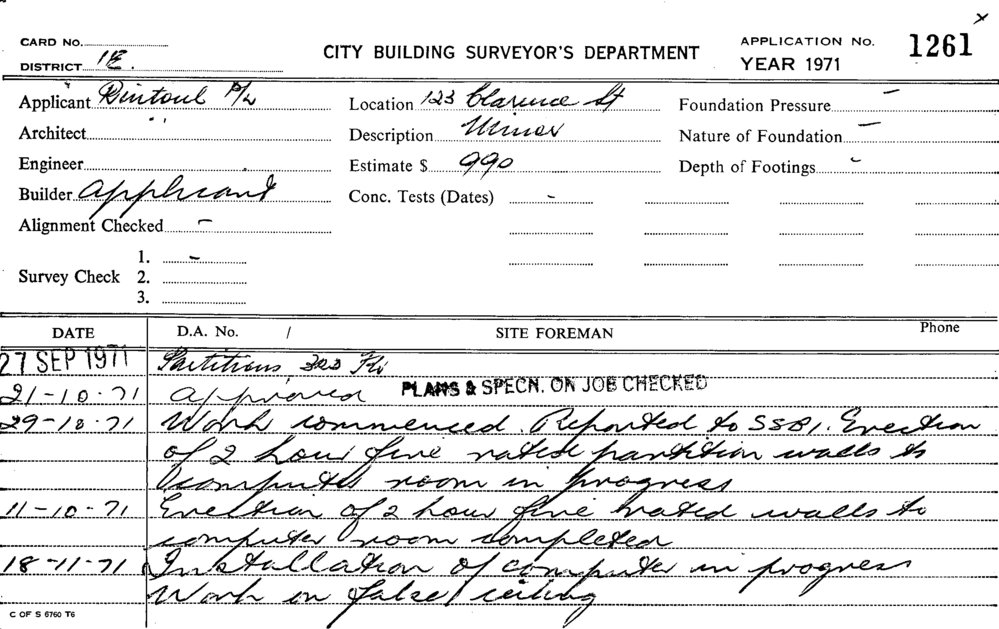 x
CARD No.
DISTRICT 1E.
CITY BUILDING SURVEYOR'S DEPARTMENT
APPLICATION No. 1261
YEAR 1971
Applicant Rintoul P/L Location 123 Clarence St Foundation Pressure -
Architect " Description Minor Nature of Foundation -
Engineer Estimate $ 990 Depth of Footings -
Builder Applicant Conc. Tests (Dates) -
Alignment Checked -
Survey Check 1. -
2.
3.
DATE D.A. No. / SITE FOREMAN Phone
27 SEP 1971 Partitions 3rd Flr
21-10-71 Approved PLANS & SPECN. ON JOB CHECKED
29-10-71 Work commenced. Reported to SSBI. Erection
of 2 hour fire rated partition walls to
computer room in progress
11-10-71 Erection of 2 hour fire rated walls to
computer room completed
18-11-71 Installation of computer in progress
Work on false ceiling
C OF S 6760 T6